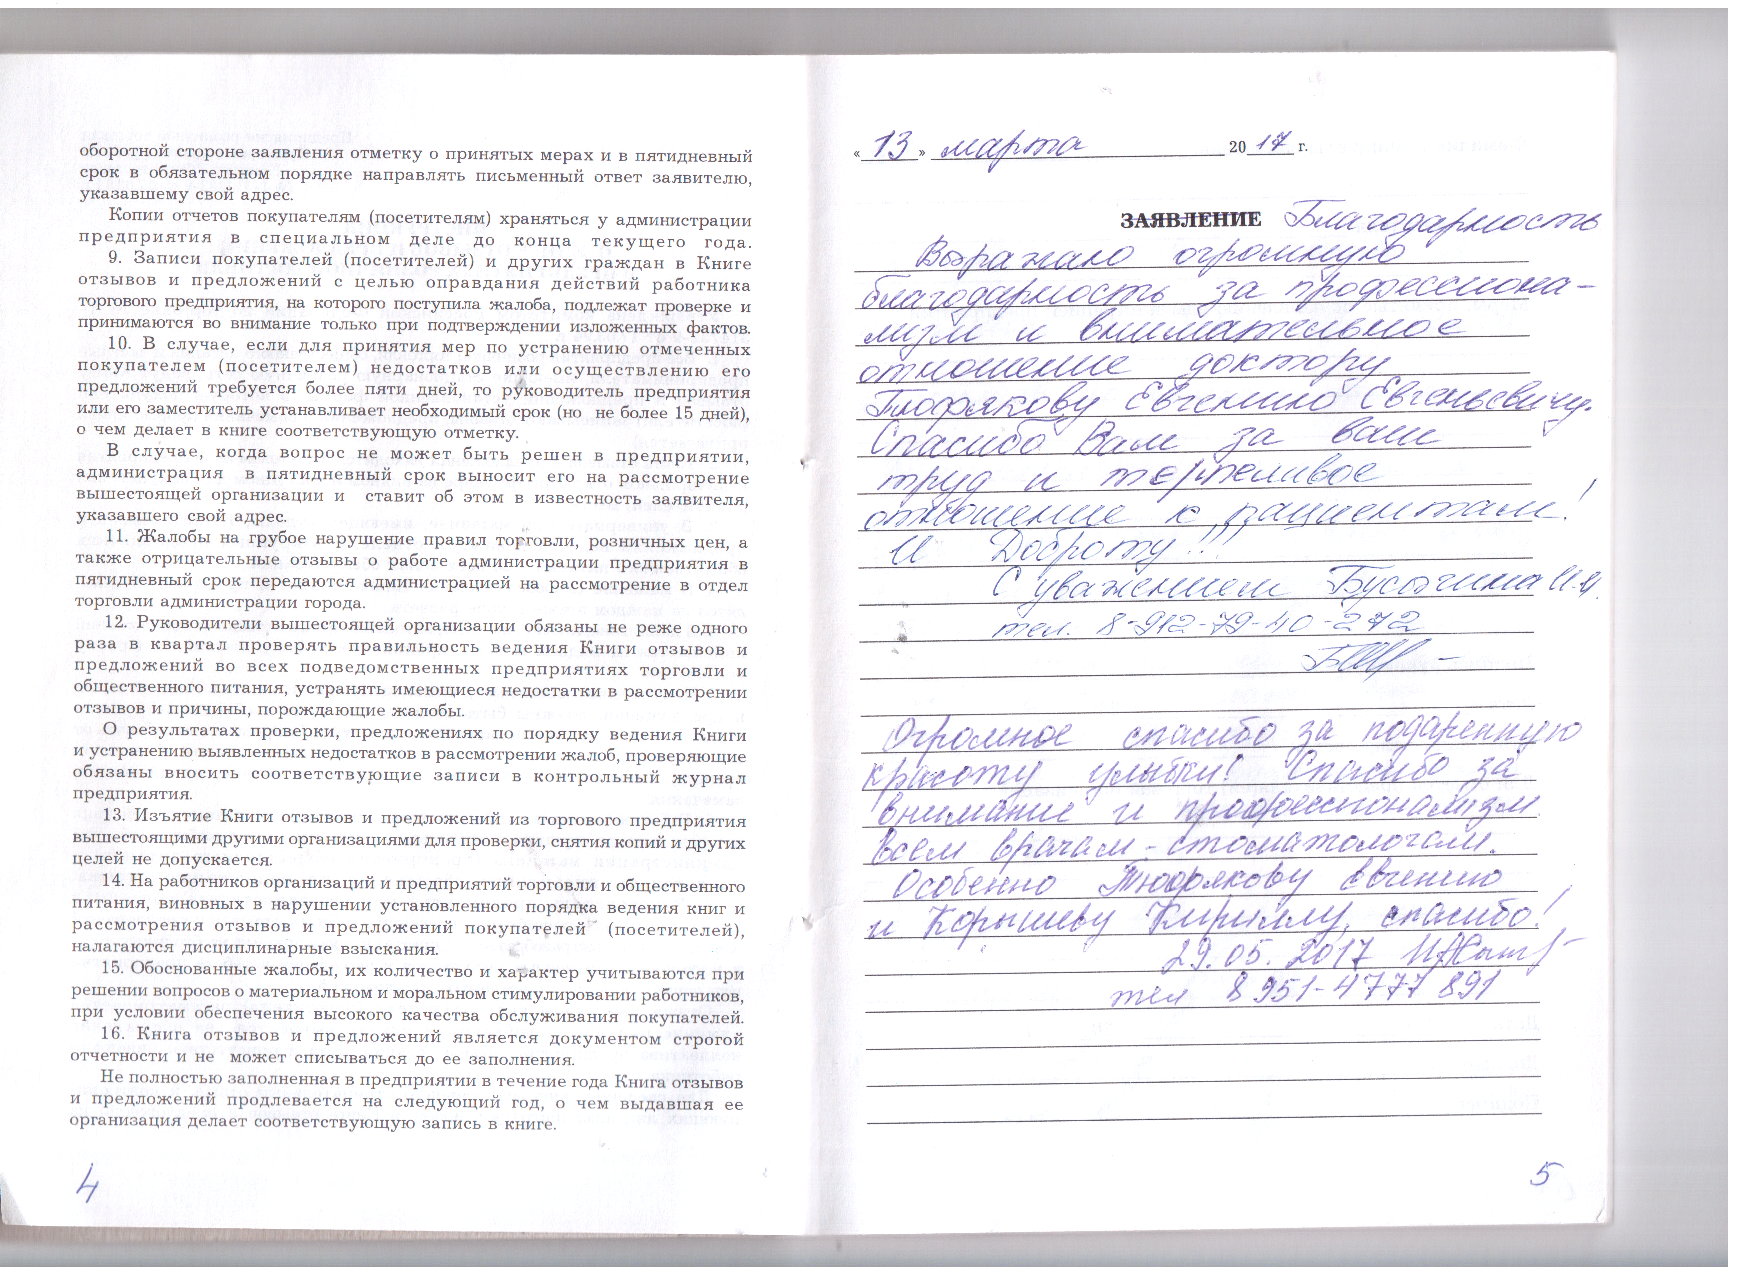 оборотной стороне заявления отметку о принятых мерах и в пятидневный
срок в обязательном порядке направлять письменный ответ заявителю,
указавшему свой адрес.
Копии отчетов покупателям (посетителям) храняться у администрации
предприятия в специальном деле до конца текущего года.
9. Записи покупателей (посетителей) и других граждан в Книге
отзывов и предложений с целью оправдания действий работника
торгового предприятия, на которого поступила жалоба, подлежат проверке и
принимаются во внимание только при подтверждении изложенных фактов.
10. В случае, если для принятия мер по устранению отмеченных
покупателем (посетителем) недостатков или осуществлению его
предложений требуется более пяти дней, то руководитель предприятия
или его заместитель устанавливает необходимый срок (но не более 15 дней),
о чем делает в книге соответствующую отметку.
В случае, когда вопрос не может быть решен в предприятии,
администрация в пятидневный срок выносит его на рассмотрение
вышестоящей организации и ставит об этом в известность заявителя,
указавшего свой адрес.
11. Жалобы на грубое нарушение правил торговли, розничных цен, а
также отрицательные отзывы о работе администрации предприятия в
пятидневный срок передаются администрацией на рассмотрение в отдел
торговли администрации города.
12. Руководители вышестоящей организации обязаны не реже одного
раза в квартал проверять правильность ведения Книги отзывов и
предложений во всех подведомственных предприятиях торговли и
общественного питания, устранять имеющиеся недостатки в рассмотрении
отзывов и причины, порождающие жалобы.
О результатах проверки, предложениях по порядку ведения Книги
и устранению выявленных недостатков в рассмотрении жалоб, проверяющие
обязаны вносить соответствующие записи в контрольный журнал
предприятия.
13. Изъятие Книги отзывов и предложений из торгового предприятия
вышестоящими другими организациями для проверки, снятия копий и других
целей не допускается.
14. На работников организаций и предприятий торговли и общественного
питания, виновных в нарушении установленного порядка ведения книг и
рассмотрения отзывов и предложений покупателей (посетителей),
налагаются дисциплинарные взыскания.
15. Обоснованные жалобы, их количество и характер учитываются при
решении вопросов о материальном и моральном стимулировании работников,
при условии обеспечения высокого качества обслуживания покупателей.
16. Книга отзывов и предложений является документом строгой
отчетности и не может списываться до ее заполнения.
Не полностью заполненная в предприятии в течение года Книга отзывов
и предложений продлевается на следующий год, о чем выдавшая ее
организация делает соответствующую запись в книге.
4
«13» марта 2017 г.
ЗАЯВЛЕНИЕ Благодарность
Выражаю огромную
благодарность за профессиона-
лизм и внимательное
отношение доктору
Тюфякову Евгению Евгеньевичу.
Спасибо Вам за ваш
труд и терпеливое
отношение к пациентам!
И Доброту!!!
С уважением Бусыгина И.И.
тел. 8-912-79-40-272
Огромное спасибо за подаренную
красоту улыбки! Спасибо за
внимание и профессионализм
всем врачам-стоматологам.
Особенно Тюфякову Евгению
и Корышеву Кириллу, спасибо!
29.05.2017
тел 8951-4777891
5